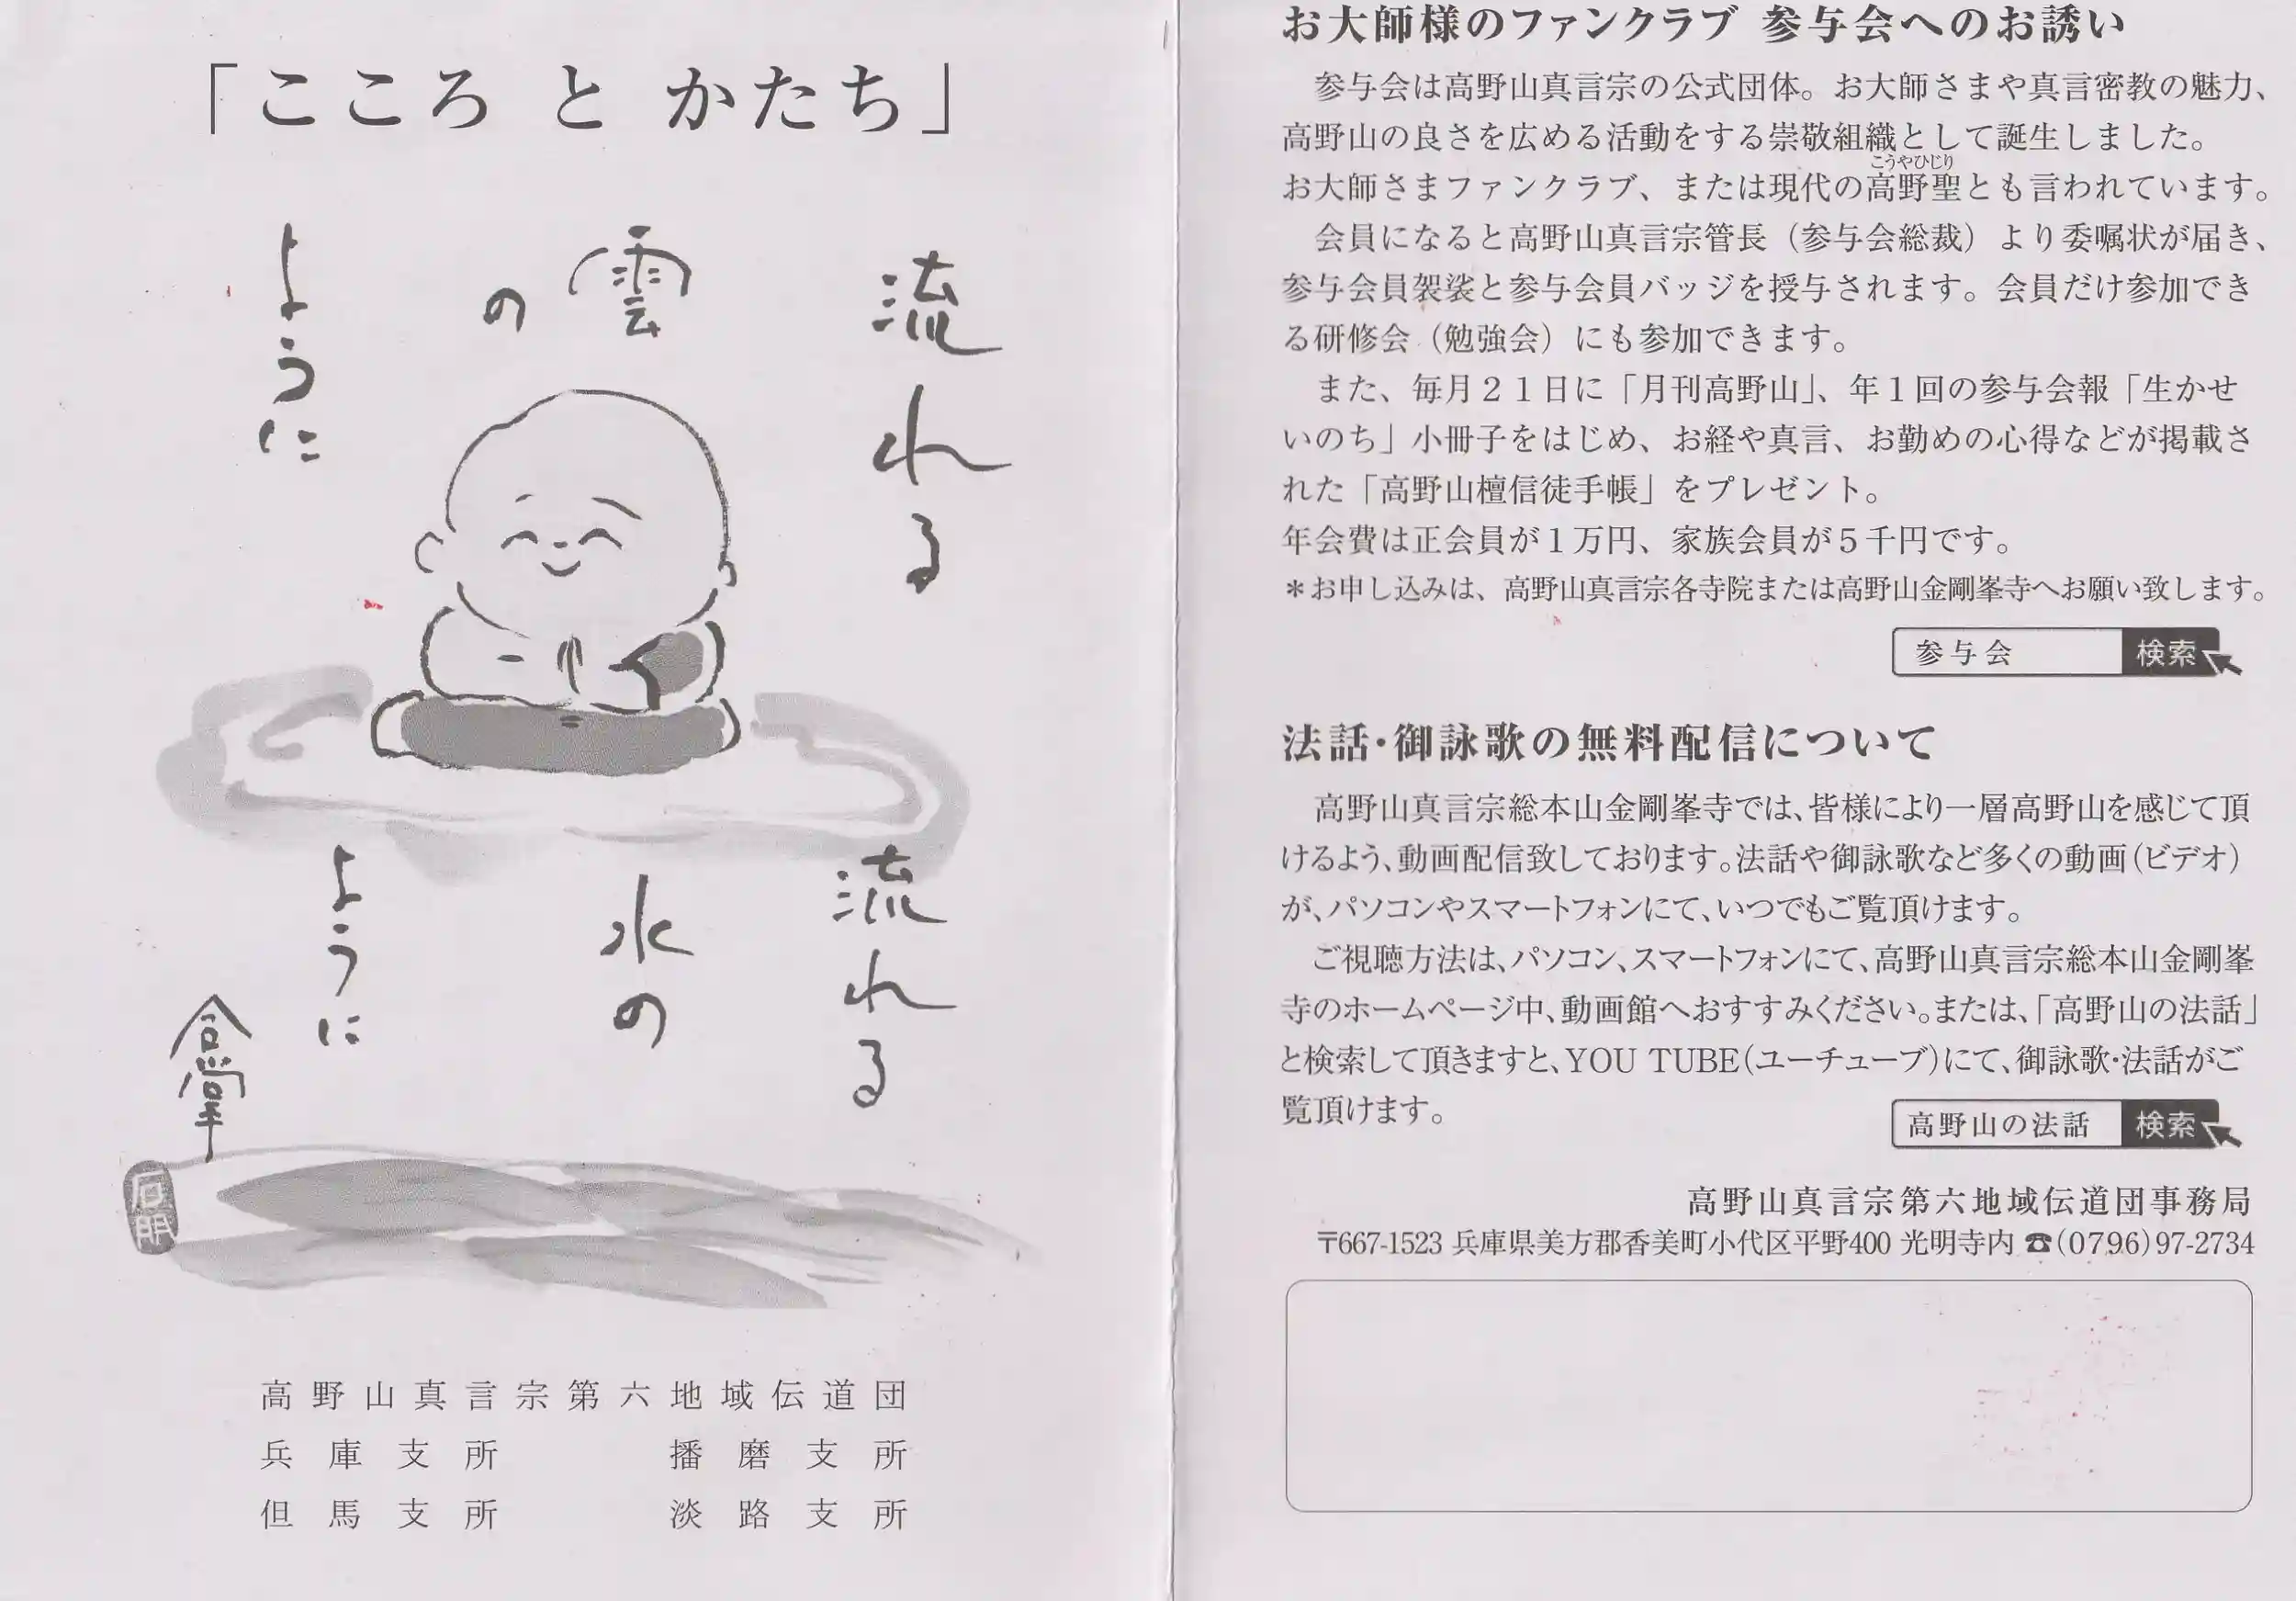 「こころ と かたち」
流れる
雲の
ように
流れる
水の
ように
合掌
高野山真言宗第六地域伝道団
兵庫支所 播磨支所
但馬支所 淡路支所
お大師様のファンクラブ 参与会へのお誘い
参与会は高野山真言宗の公式団体。お大師さまや真言密教の魅力、
高野山の良さを広める活動をする崇敬組織として誕生しました。
こうやひじり
お大師さまファンクラブ、または現代の高野聖とも言われています。
会員になると高野山真言宗管長（参与会総裁）より委嘱状が届き、
参与会員袈裟と参与会員バッジを授与されます。会員だけ参加でき
る研修会（勉強会）にも参加できます。
また、毎月２１日に「月刊高野山」、年１回の参与会報「生かせ
いのち」小冊子をはじめ、お経や真言、お勤めの心得などが掲載さ
れた「高野山檀信徒手帳」をプレゼント。
年会費は正会員が１万円、家族会員が５千円です。
＊お申し込みは、高野山真言宗各寺院または高野山金剛峯寺へお願い致します。
参与会 検索
法話・御詠歌の無料配信について
高野山真言宗総本山金剛峯寺では、皆様により一層高野山を感じて頂
けるよう、動画配信致しております。法話や御詠歌など多くの動画（ビデオ）
が、パソコンやスマートフォンにて、いつでもご覧頂けます。
ご視聴方法は、パソコン、スマートフォンにて、高野山真言宗総本山金剛峯
寺のホームページ中、動画館へおすすみください。または、「高野山の法話」
と検索して頂きますと、YOU TUBE（ユーチューブ）にて、御詠歌・法話がご
覧頂けます。
高野山の法話 検索
高野山真言宗第六地域伝道団事務局
〒667-1523 兵庫県美方郡香美町小代区平野400 光明寺内 ☎（0796）97-2734